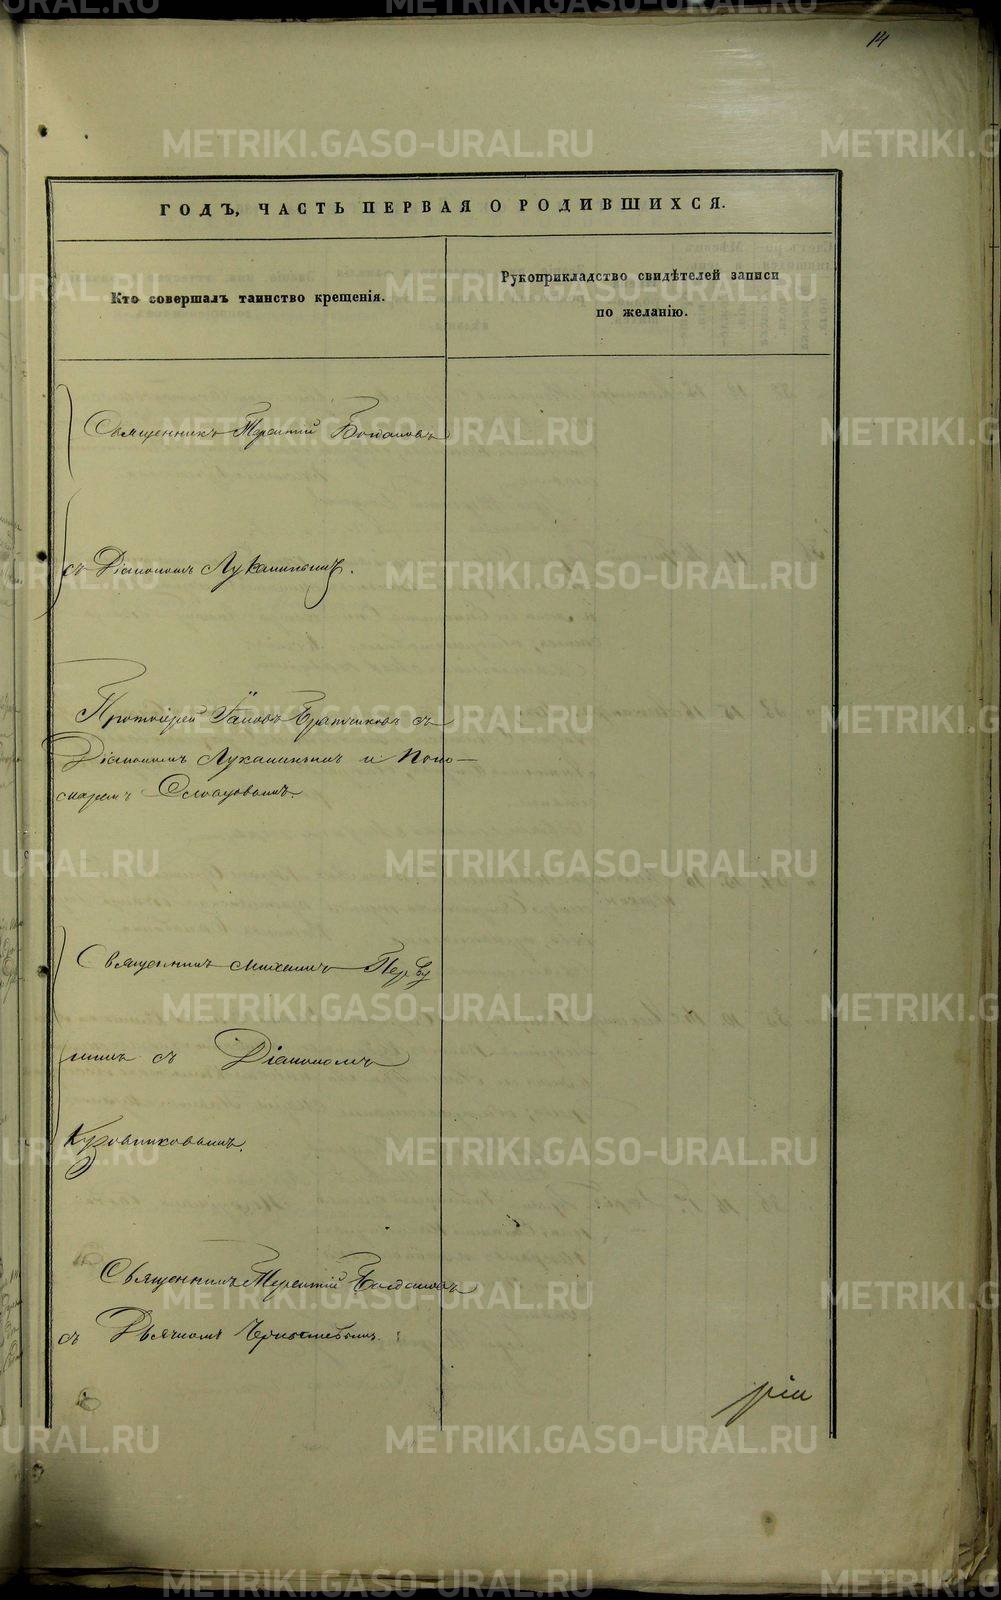 14
ГОДЪ, ЧАСТЬ ПЕРВАЯ О РОДИВШИХСЯ.
Кто совершалъ таинство крещенія.
Рукоприкладство свидѣтелей записи
по желанію.
Священникъ Терентій Богдановъ
съ Діакономъ Луканинымъ.
Протоіерей Іаковъ Братчиковъ съ
Діакономъ Луканинымъ и Поно-
маремъ
Священникъ Михаилъ Перву
шинъ съ Діакономъ
Кузовниковымъ.
Священникъ Терентій Богдановъ
съ Дьячкомъ
METRIKI.GASO-URAL.RU